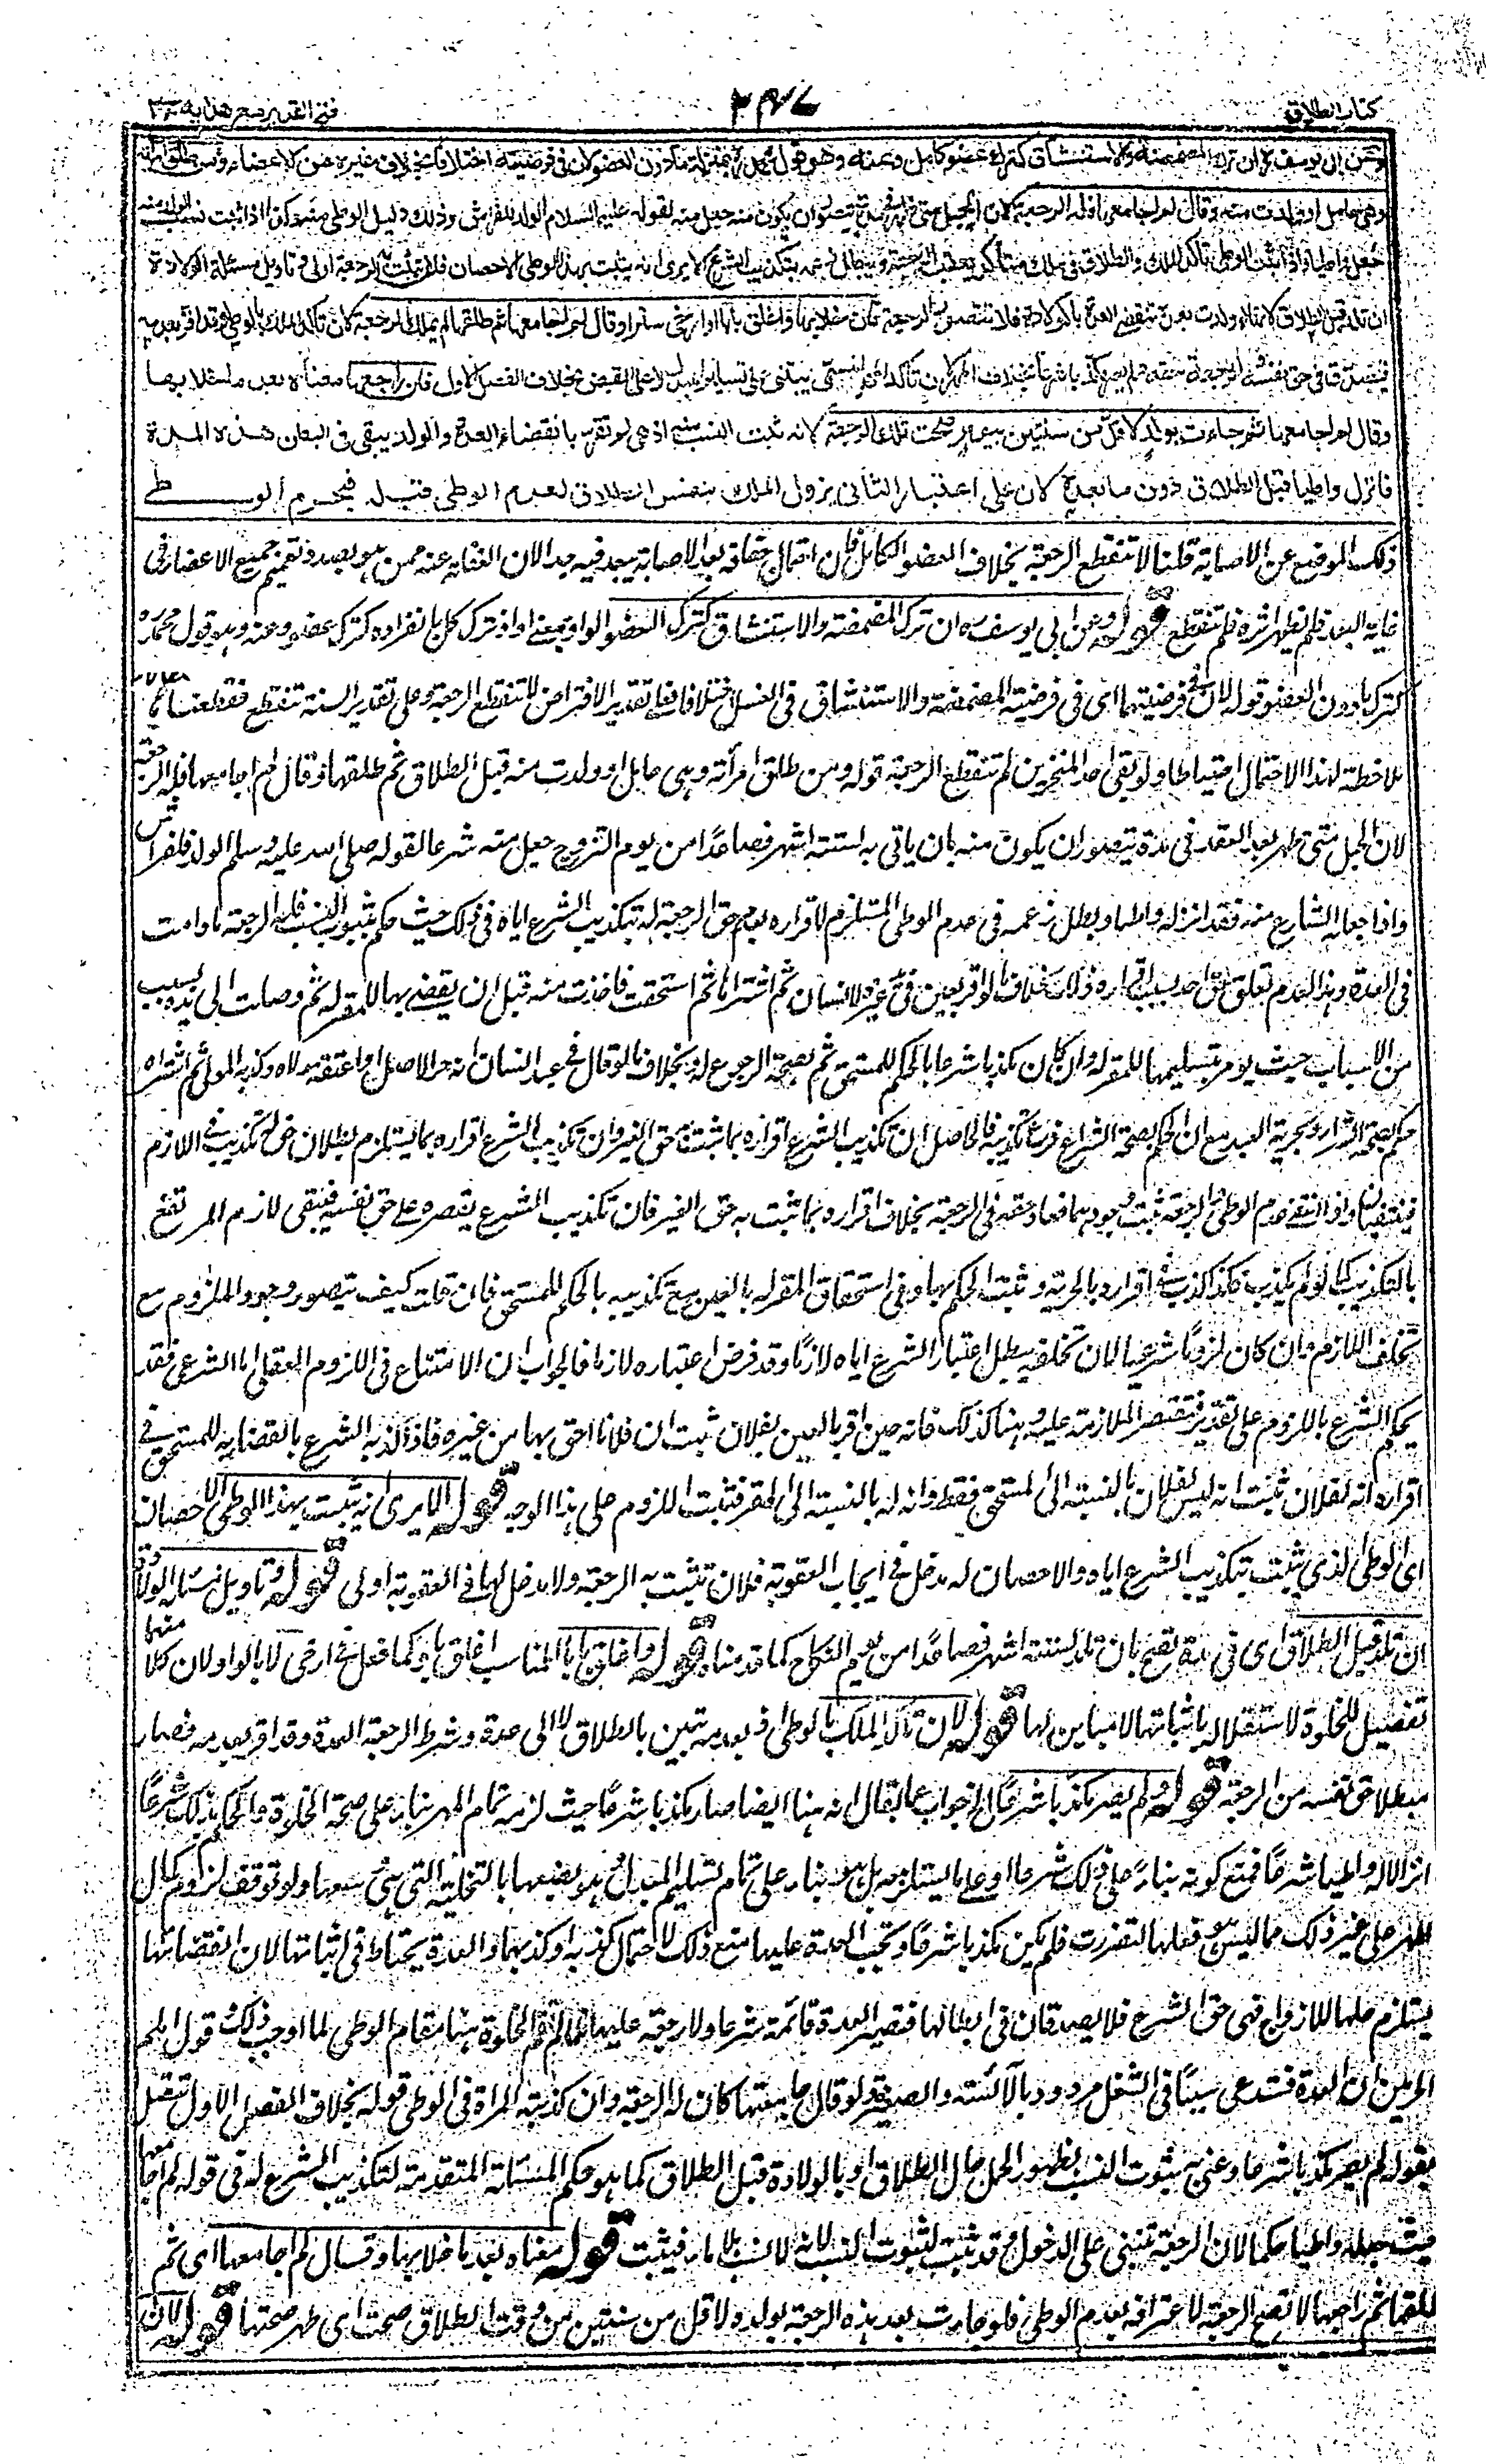 كتاب الطلاق
فتح القدير مع هدايه
وعن ابى يوسف ان ترك المضمضة والاستنشاق كترك عضو كامل وعنه وهو قول محمد بمنزلة ما دون العضو لان فى فرضيته اختلافا بخلاف غيره من الاعضاء ومن طلق امرأته
وهى حامل او ولدت منه وقال لم اجامعها فله الرجعة لان الحبل متى ظهر فى مدة يتصور ان يكون منه جعل منه لقوله عليه السلام الولد للفراش وذلك دليل الوطى منه وكذا اذا ثبت نسب الولد منه
جعل واطيا واذا ثبت الوطى تأكد الملك والطلاق فى ملك متأكد يعقب الرجعة ويبطل زعمه بتكذيب الشرع الا يرى انه يثبت بهذا الوطى الاحصان فلان تثبت به الرجعة اولى وتاويل مسئلة الولادة
ان تلد قبل الطلاق لانها لو ولدت بعده تنقضى العدة بالولادة فلا تتصور الرجعة فان خلا بها واغلق بابا او ارخى سترا وقال لم اجامعها ثم طلقها لم يملك الرجعة لان تأكد الملك بالوطى وقد اقر بعدمه
فيصدق فى حق نفسه والرجعة حقه ولم يصر مكذبا شرعا بخلاف المهر لان تأكد المهر المسمى يبتنى على تسليم المبدل لا على القبض بخلاف الفصل الاول فان راجعها معناه بعد ما خلا بها
وقال لم اجامعها ثم جاءت بولد لاقل من سنتين بيوم صحت تلك الرجعة لانه ثبت النسب منه اذ هى لم تقر بانقضاء العدة والولد يبقى فى البطن هذه المدة
فانزل واطيا قبل الطلاق دون ما بعده لان على اعتبار الثانى يزول الملك بنفس الطلاق لعدم الوطى قبله فيحرم الوطى
ذلك الموضع عن الاصابة قلنا لا تنقطع الرجعة بخلاف العضو الكامل فان احتمال جفافه بعد الاصابة بعيد فيه جدا لان الغفلة عنه ممن هو بصدد تعميم جميع الاعضاء فى
غاية البعد فلم يظهر اثره فلم تنقطع قوله وعن ابى يوسف ره ان ترك المضمضة والاستنشاق كترك العضو الواو بمعنى او اذ ترك كل بانفراده كترك عضو وعنه وهو قول محمد ره
كترك ما دون العضو قوله لان فى فرضيتهما اى فى فرضية المضمضة والاستنشاق فى الغسل اختلافا فعلى تقدير الافتراض لا تنقطع الرجعة وعلى تقدير السنة تنقطع فقطعناها
ملاحظة لهذا الاحتمال احتياطا ولو بقى احد المنخرين لم تنقطع الرجعة قوله ومن طلق امرأته وهى حامل او ولدت منه قبل الطلاق ثم طلقها وقال لم اجامعها فله الرجعة
لان الحبل متى ظهر بعد العقد فى مدة يتصور ان يكون منه بان ياتى به لستة اشهر فصاعدًا من يوم التزوج جعل منه شرعا لقوله صلى الله عليه وسلم الولد للفراش
واذا جعله الشارع منه فقد انزله واطيا وبطل زعمه فى عدم الوطى المستلزم لاقراره بعدم حق الرجعة له بتكذيب الشرع اياه فى ذلك حيث حكم بثبوت النسب فله الرجعة مادامت
فى العدة وهذا لعدم تعلق حق احد بسبب اقراره ذلك بخلاف ما لو اقر بعين فى يد غيره لانسان ثم اشتراها ثم استحقت فاخذت منه قبل ان يقضى بها للمقر له ثم وصلت الى يده بسبب
من الاسباب حيث يومر بتسليمها للمقر له وان كان مكذبا شرعا بالحكم للمستحق ثم يصحة الرجوع له وبخلاف ما لو قال فى عبد انسان انه حر الاصل او اعتقه مولاه وكذبه المولى ثم اشتراه
حكم بصحة الشراء وبحرية العبد مع ان الحكم بصحة الشراء فرع تكذيبه فالحاصل ان تكذيب الشرع اقراره بما ثبت به حق الغير وان تكذيب الشرع اقراره بما يستلزم بطلان حق له تكذيب فى اللازم
فينتفيان واذا انتفى عدم الوطى والرجعة ثبت وجودهما فعاد حقه فى الرجعة بخلاف اقراره بما ثبت به حق الغير فان تكذيب الشرع يقصره على حق نفسه فيبقى لازم المرتفع
بالتكذيب كما لو لم يكذب فكذا كذب فى اقراره بالحرية وثبت الحكم بها وفى استحقاق المقر له بالعين مع تكذيبه بالحكم للمستحق فان قلت كيف يتصور وجود الملزوم مع
تخلف اللازم وان كان لزومًا شرعيا لان تخلفه يبطل اعتبار الشرع اياه لازمًا وقد فرض اعتباره لازما فالجواب ان الامتناع فى اللزوم العقلى اما الشرعى فقد
يحكم الشرع باللزوم على تقدير فتقتصر الملازمة عليه وهنا كذلك فانه حين اقر بالعين لفلان ثبت ان فلانا احق بها من غيره فاذا كذبه الشرع بالقضاء به للمستحق فى
اقراره انه لفلان ثبت انه ليس لفلان بالنسبة الى المستحق فقط وانه له بالنسبة الى المقر فثبت اللزوم على هذا الوجه قوله الا يرى انه يثبت بهذا الوطى الاحصان
اى الوطى الذى يثبت بتكذيب الشرع اياه والاحصان له مدخل فى ايجاب العقوبة فلان تثبت به الرجعة ولا مدخل لها فى العقوبة اولى قوله وتاويل مسئلة الولادة
ان تلد قبل الطلاق اى فى مدة يصح بان تلد لستة اشهر فصاعدًا من يوم النكاح كما قدمناه قوله واغلق بابا المناسب اغلق بابا وكما فعل فى ارخى لا بالواو لان كلا منهما
تفصيل للخلوة لاستقلاله باثباتها لا مباين لها قوله لان تأكد الملك بالوطى اذ بعدمه تبين بالطلاق لا الى عدة وشرط الرجعة العدة وقد اقر بعدمه فصار
مبطلا حق نفسه من الرجعة قوله ولم يصر مكذبا شرعًا الخ جواب عما يقال انه هنا ايضا صار مكذبا شرعًا حيث لزمه تمام المهر بناء على صحة الخلوة والحكم بذلك شرعًا
انزالا له واطيا شرعًا فمنع كونه بناءً على ذلك شرعا او على ما يستلزمه بل هو بناء على تمام تسليم المبدل وهو بضعها بالتخلية التى هى وسعها ولو توقف لزوم كمال
المهر على غير ذلك مما ليس هو فعلها لتضررت فلم يكن مكذبا شرعًا وتجب العدة عليها مع ذلك لاحتمال كذبه او كذبهما والعدة يحتاط فى اثباتها لان انقضاءها
يستلزم حلها للازواج فهى حق الشرع فلا يصدقان فى ابطالها فتصير العدة قائمة شرعا ولا رجعة عليها لما لم تقم الخلوة هنا مقام الوطى لما اوجب ذلك وقول امام
الحرمين ان العدة تستدعى سببًا فى الشغل مردود بالآئسة والصغيرة ولو قال جامعتها كان له الرجعة وان كذبته المرأة فى الوطى قوله بخلاف الفصل الاول متصل
بقوله لم يصر مكذبا شرعا وعنى به ثبوت النسب بظهور الحمل حال الطلاق او بالولادة قبل الطلاق كما هو حكم المسئلة المتقدمة لتكذيب الشرع له فى قوله لم اجامعها
حيث جعله واطيا حكما لان الرجعة تنبنى على الدخول وقد ثبت لثبوت النسب لانه لا نسب بلا ماء فيثبت قوله معناه بعد ما خلا بها وقال لم اجامعها اى ثم
طلقها ثم راجعها لا تصح الرجعة لاعترافه بعدم الوطى فلو جاءت بعد هذه الرجعة بولد ولاقل من سنتين من وقت الطلاق صحت اى ظهر صحتها قوله لان